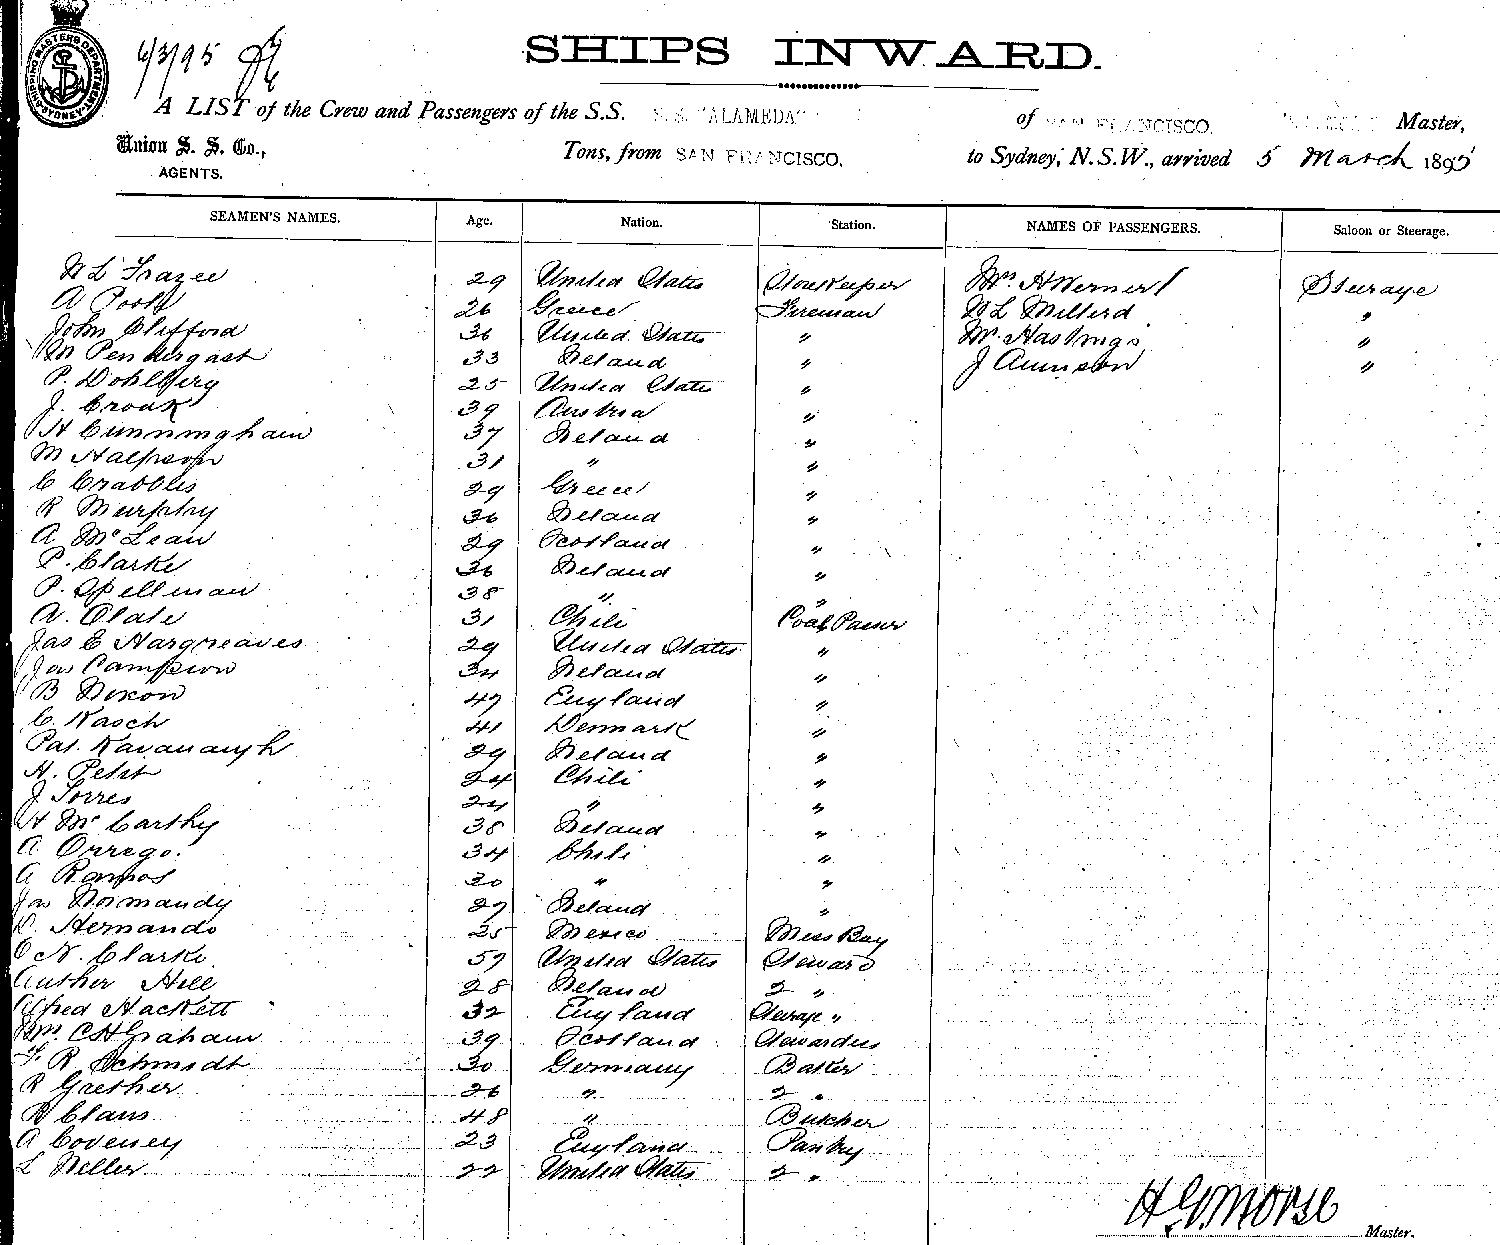 SHIPPING MASTERS DEPARTMENT SYDNEY
6/3/95
SHIPS INWARD.
A LIST of the Crew and Passengers of the S.S. S.S. "ALAMEDA" of SAN FRANCISCO. Master,
Union S. S. Co., AGENTS. Tons, from SAN FRANCISCO. to Sydney, N.S.W., arrived 5 March 1895
SEAMEN'S NAMES. Age. Nation. Station. NAMES OF PASSENGERS. Saloon or Steerage.
W L Frazee 29 United States Storekeeper Mrs. H Werner Steerage
A Poole 26 Greece Fireman W L Millerd "
John Clifford 36 United States " Mr. Hastings "
M Pendergast 33 Ireland " J "
P. Dohlberg 25 United States "
J. Croak 39 Austria "
H Cunningham 37 Ireland "
M Halpson 31 " "
C Crabbles 29 Greece "
R Murphy 36 Ireland "
A McLean 29 Scotland "
P. Clarke 36 Ireland "
P. Spellman 38 " "
A. Olate 31 Chili Coal Passer
Jas E Hargreaves 29 United States "
Jas Campion 34 Ireland "
B Dixon 47 England "
C. Rasch 41 Denmark "
Pat. Kavanaugh 29 Ireland "
H. Petit 24 Chili "
J Torres 24 " "
H McCarthy 38 Ireland "
A Orrego. 34 Chili "
A Ramos 20 " "
Jas Normandy 27 Ireland "
D. Hernando 25 Mexico Mess Boy
C N. Clarke 57 United States Steward
Author Hill 28 Ireland 2 "
Alfred Hackett 32 England Steerage "
Mrs. C H Graham 39 Scotland Stewardess
F. R Schmidt 30 Germany Baker
R Grether 26 " 2 "
R Claus 48 " Butcher
A Coveney 23 England Pantry
L Weller 22 United States 2 "
H G Morse Master.